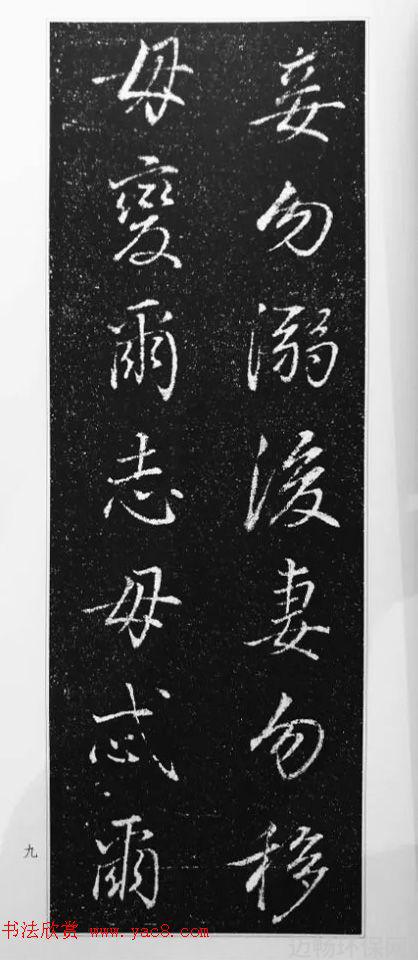 妾勿溺後妻勿移
毋變爾志毋忒爾
九
书法欣赏 www.yac8.com
迈畅环保网